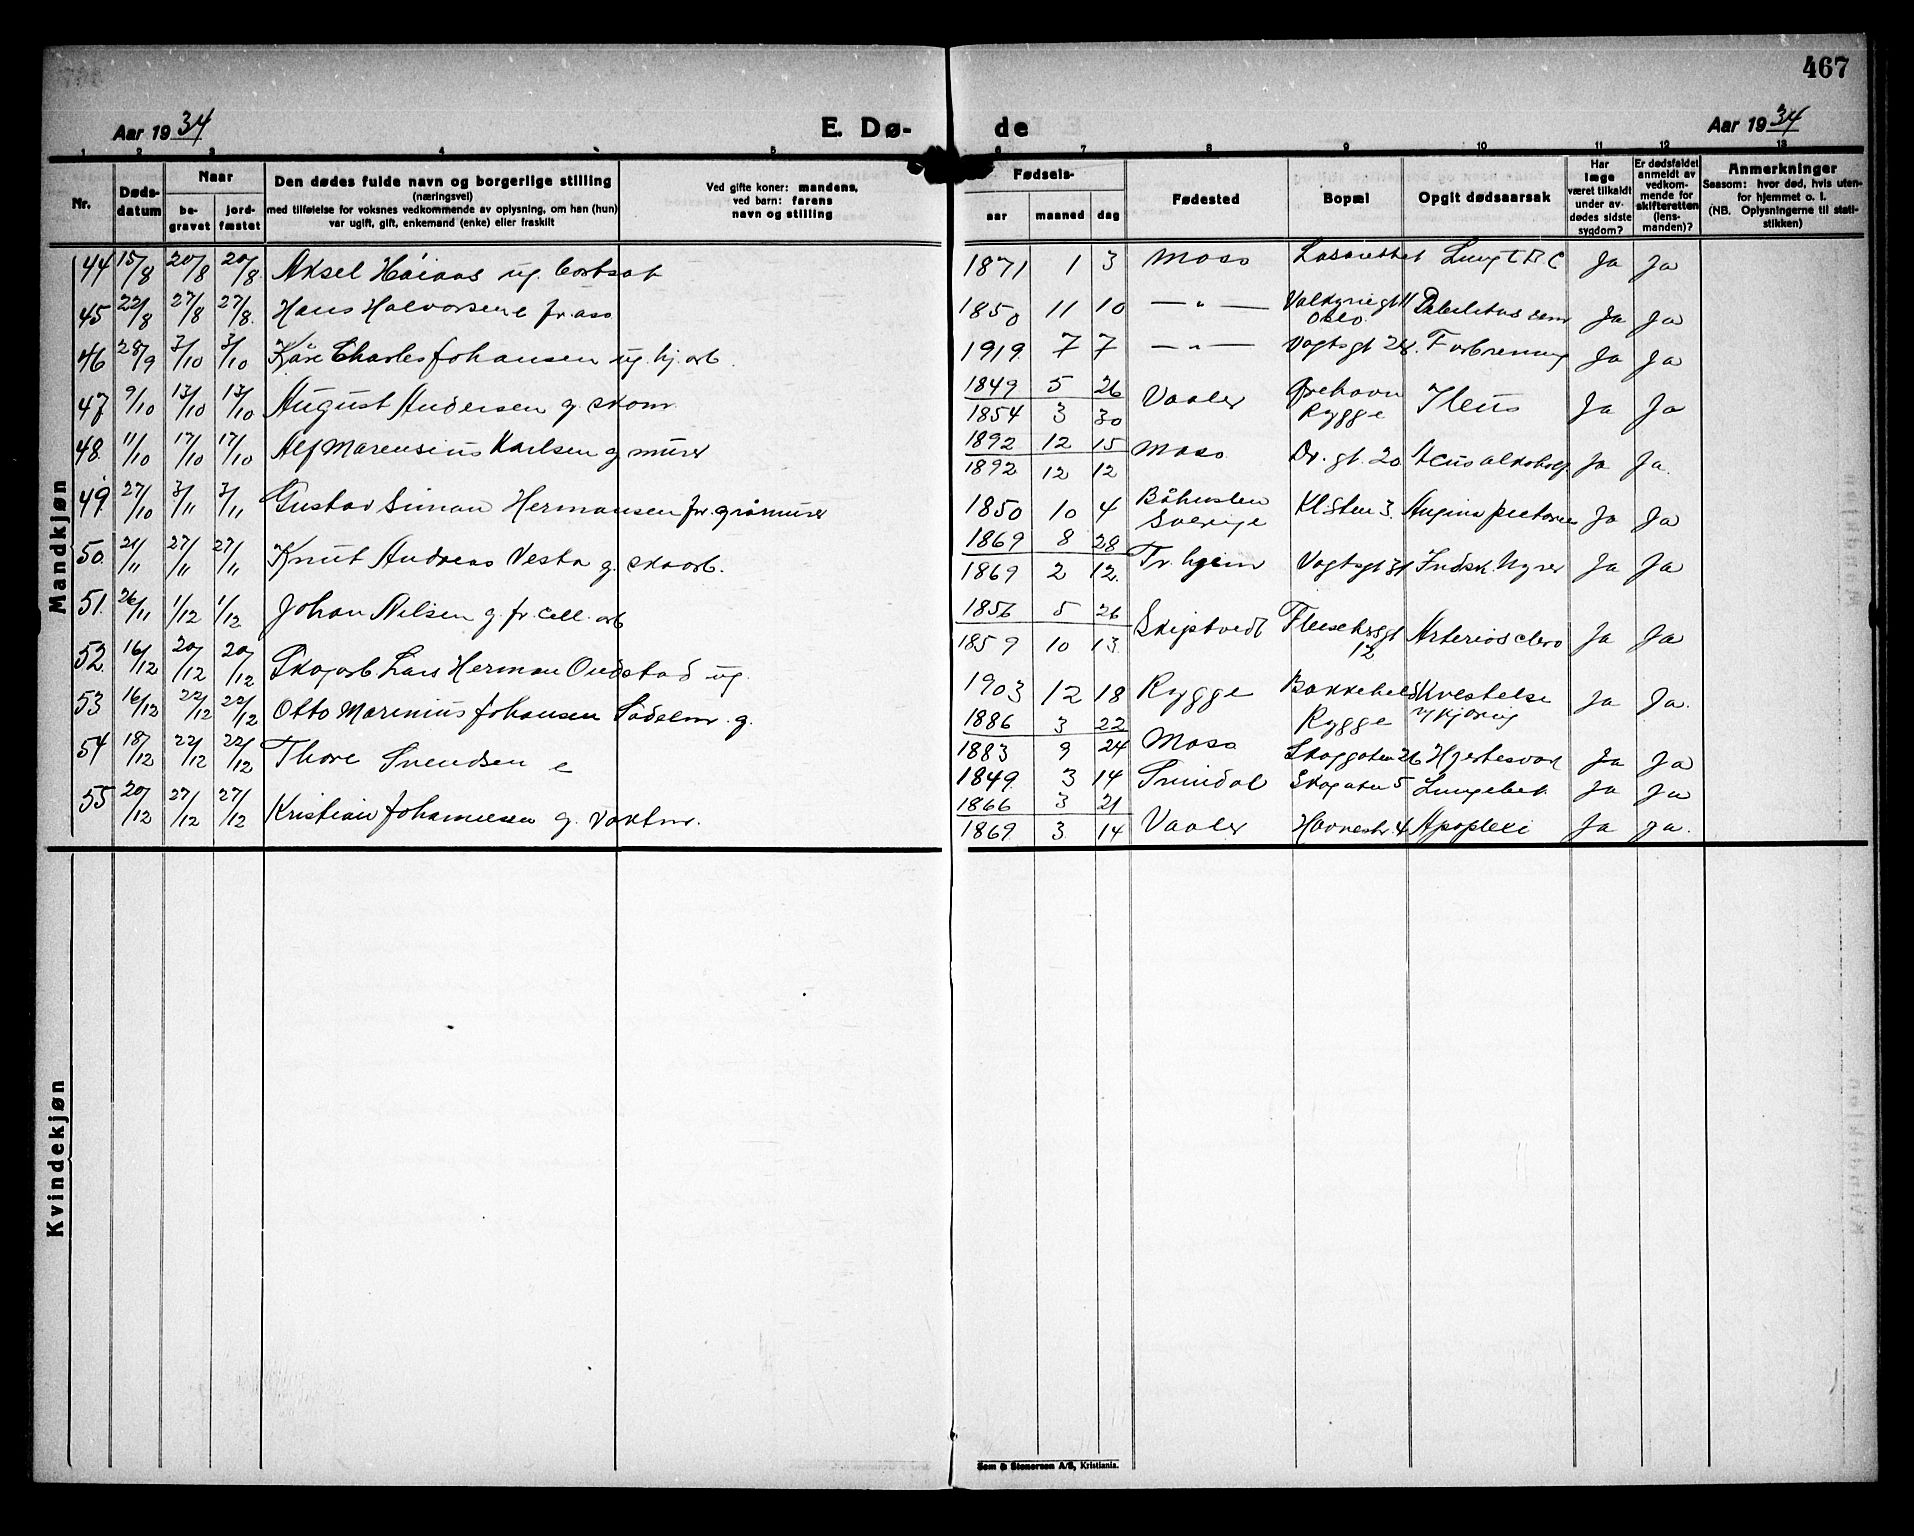 467
Aar 1934
E. Dø-
de
Aar 1934
1 2 3 4 5 6 7 8 9 10 11 12 13
Nr.
Døds-
datum
Naar
be-
gravet
jord-
fæstet
Den dødes fulde navn og borgerlige stilling
(næringsvei)
med tilføielse for voksnes vedkommende av oplysning, om han (hun)
var ugift, gift, enkemand (enke) eller fraskilt
Ved gifte koner: mandens,
ved barn: farens
navn og stilling
Fødsels-
aar maaned dag
Fødested
Bopæl
Opgit dødsaarsak
Har
læge
været tilkaldt
under av-
dødes sidste
sygdom?
Er dødsfaldet
anmeldt av
vedkom-
mende for
skifteretten
(lens-
manden)?
Anmerkninger
Saasom: hvor død, hvis uten-
for hjemmet o. l.
(NB. Oplysningerne til stati-
stikken)
Mandkjøn
44 15/8 20/8 20/8 Aksel ug. 1871 1 3 Moss Ja Ja
45 22/8 27/8 27/8 Hans Halvorsen e 1850 11 10 — " — Ja Ja
Oslo
46 28/9 3/10 3/10 Kåre Charles Johansen ug. hj. arb. 1919 7 7 — " — Vogtsgt 28. Forbrenning Ja Ja
47 9/10 13/10 13/10 August Andersen g. skom. 1849 5 26 Vaaler Ørehavn Ileus Ja Ja
1854 3 30 Rygge
48 11/10 17/10 17/10 Alf Marensius Karlsen g murer 1892 12 15 Moss Dr. gt. 20 Ja Ja.
1892 12 12
49 27/10 3/11 3/11 Gustav Simon Hermansen fr. gråmurer 1850 10 4 Båhuslen Angina pectoris Ja Ja
Sverige
50 21/11 27/11 27/11 Knut Andreas Vesta g. skoarb. 1869 8 28 Tr.hjem Vogtsgt 31 Ja Ja
1869 2 12
51 26/11 1/12 1/12 Johan Nilsen g. fr. cell. arb 1856 5 26 Skiptvedt Arterioscler Ja Ja
1859 10 13 12
52 16/12 20/12 20/12 Skogarb Lars Herman Ondstad ug. 1903 12 18 Rygge Kvestelse Ja Ja.
v/ kjøring
53 16/12 22/12 22/12 Otto Marinius Johansen Sadelm. g. 1886 3 22 Moss Rygge
1883 9 24 Skoggaten 26 Ja Ja
54 18/12 22/12 22/12 Thore Svendsen e 1849 3 14 Skogaten 5 Lungebet. Ja Ja
55 20/12 27/12 27/12 Kristian Johannesen g. vaktm. 1866 3 21
1869 3 14 Vaaler Havnestr. 4 Apoplexi Ja Ja.
Kvindekjøn
Sem & Stenersen A/S, Kristiania.